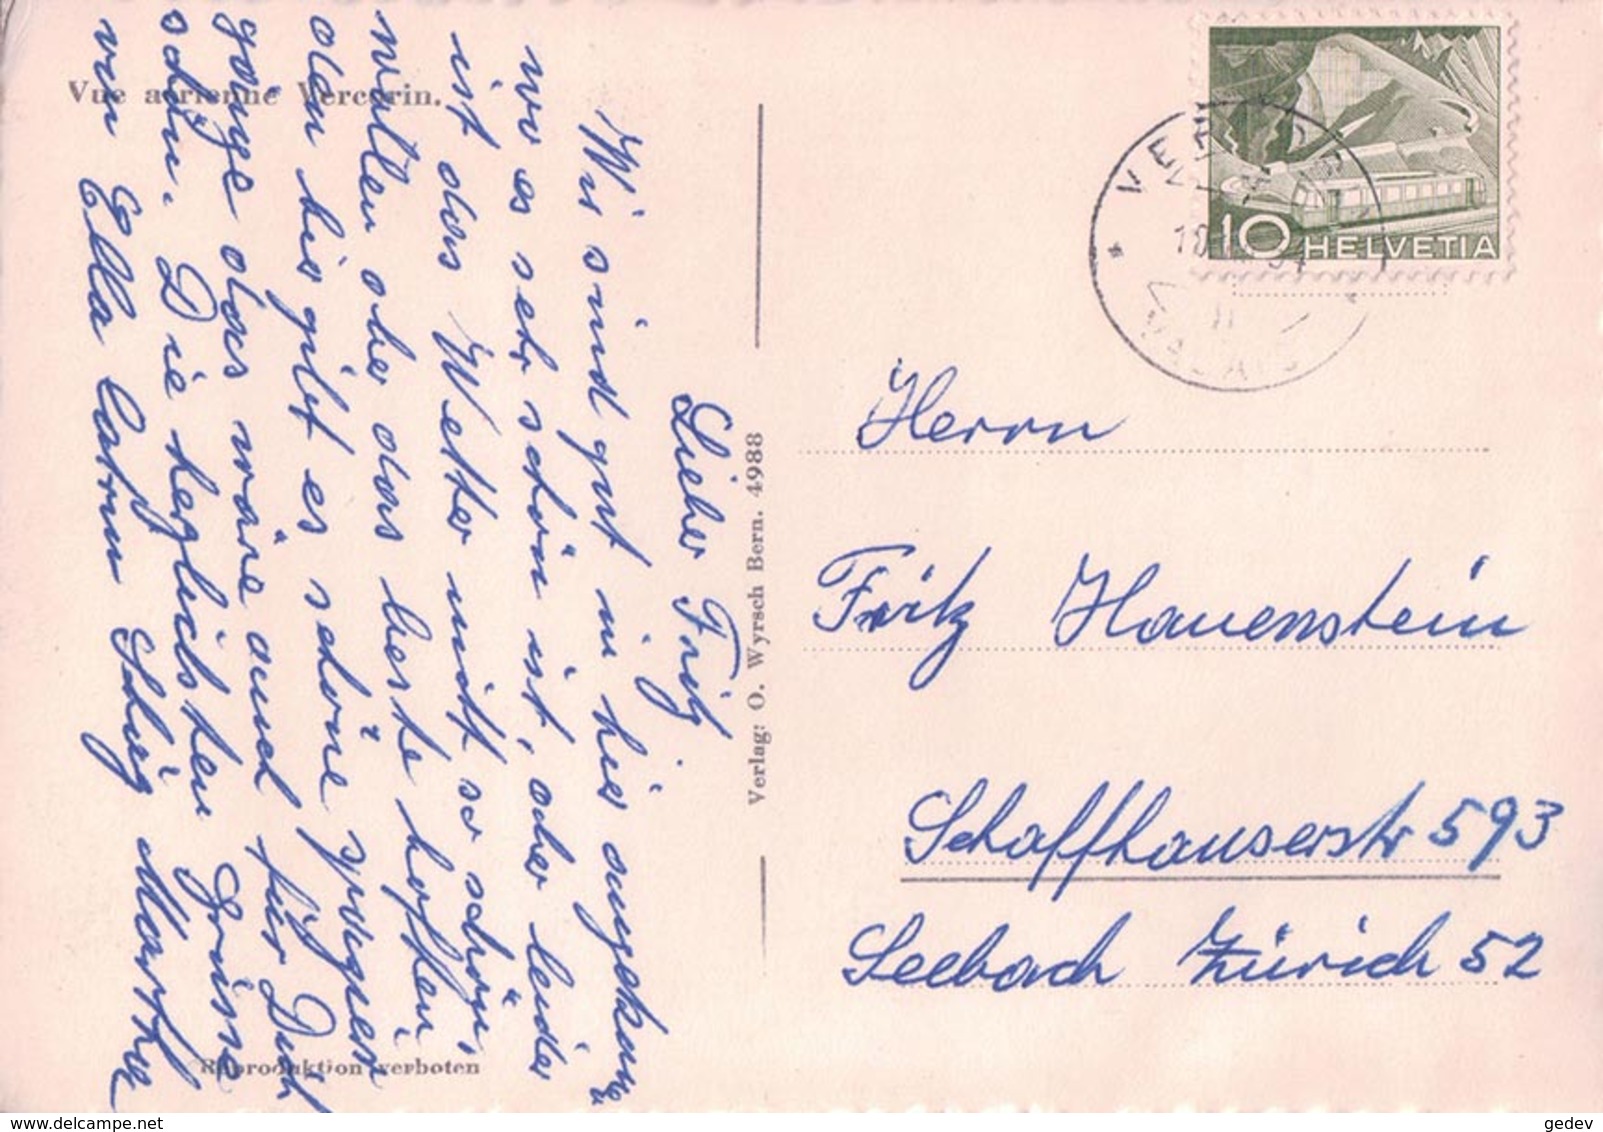 Vue aérienne Vercorin.
Lieber Fritz
Wir sind gut in hier angekommen
wo es sehr schön ist, aber leider
ist das Wetter nicht so schön,
wollen aber das beste hoffen
den hier gibt es schöne
gänge das wäre auch für Dich
schön. Die herzlichsten Grüsse
von Ella Martha
Verlag: O. Wyrsch Bern. 4988
Reproduktion verboten
10 HELVETIA
VALAIS
Herrn
Fritz Hauenstein
Schaffhauserstr 593
Seebach Zürich 52
gedev
delcampe.net